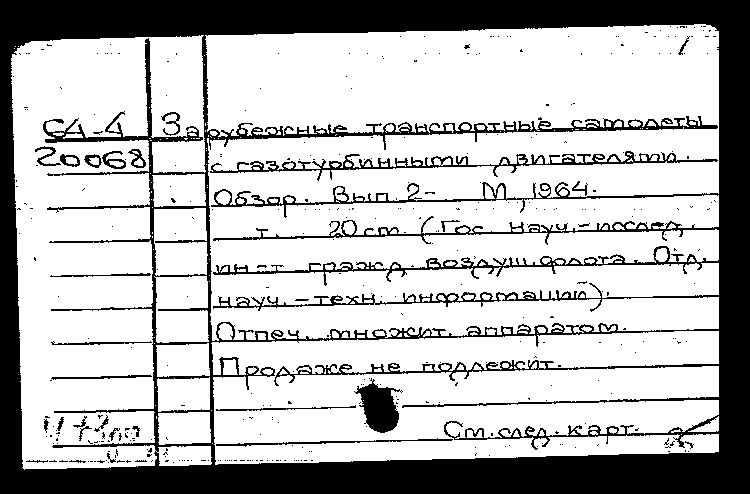 64-4 Зарубежные транспортные самолеты
20068 с газотурбинными двигателями.
Обзор. Вып. 2- М., 1964.
т. 20 см (Гос. науч.-исслед.
ин-т гражд. воздуш. флота. Отд.
науч.-техн. информации).
Отпеч. множит. аппаратом.
Продаже не подлежит.
См. след. карт.